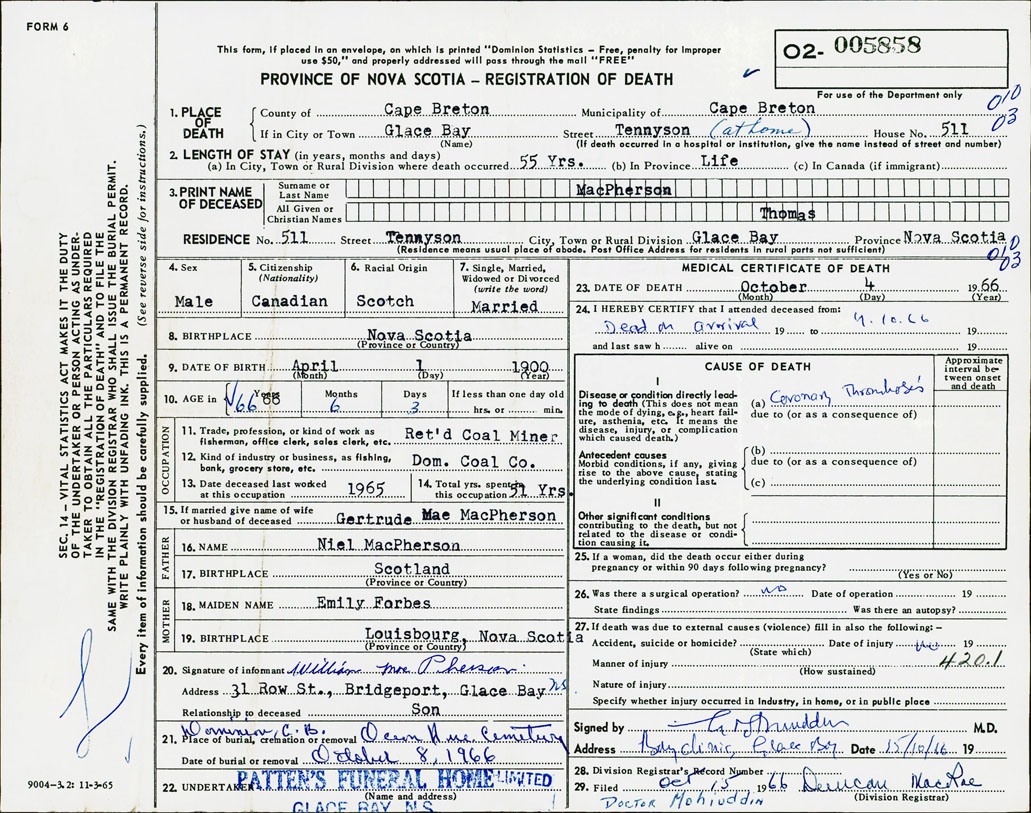 FORM 6
This form, if placed in an envelope, on which is printed "Dominion Statistics – Free, penalty for improper
use $50," and properly addressed will pass through the mail "FREE"
PROVINCE OF NOVA SCOTIA – REGISTRATION OF DEATH
O2- 005858
For use of the Department only
010
03
1. PLACE OF DEATH
County of Cape Breton Municipality of Cape Breton
If in City or Town Glace Bay Street Tennyson (at home) House No. 511
(Name) (If death occurred in a hospital or institution, give the name instead of street and number)
2. LENGTH OF STAY (in years, months and days)
(a) In City, Town or Rural Division where death occurred 55 Yrs. (b) In Province Life (c) In Canada (if immigrant)
3. PRINT NAME OF DECEASED
Surname or Last Name MacPherson
All Given or Christian Names Thomas
RESIDENCE No. 511 Street Tennyson City, Town or Rural Division Glace Bay Province Nova Scotia
(Residence means usual place of abode. Post Office Address for residents in rural parts not sufficient)
010
03
4. Sex
Male
5. Citizenship
(Nationality)
Canadian
6. Racial Origin
Scotch
7. Single, Married,
Widowed or Divorced
(write the word)
Married
8. BIRTHPLACE Nova Scotia
(Province or Country)
9. DATE OF BIRTH April 1 1900
(Month) (Day) (Year)
10. AGE in Years Months Days If less than one day old
66 66 6 3 hrs. or min.
OCCUPATION
11. Trade, profession, or kind of work as
fisherman, office clerk, sales clerk, etc. Ret'd Coal Miner
12. Kind of industry or business, as fishing,
bank, grocery store, etc. Dom. Coal Co.
13. Date deceased last worked
at this occupation 1965
14. Total yrs. spent
this occupation 51 Yrs.
15. If married give name of wife
or husband of deceased Gertrude Mae MacPherson
FATHER
16. NAME Niel MacPherson
17. BIRTHPLACE Scotland
(Province or Country)
MOTHER
18. MAIDEN NAME Emily Forbes
19. BIRTHPLACE Louisbourg, Nova Scotia
(Province or Country)
20. Signature of informant William Mac Pherson
Address 31 Row St., Bridgeport, Glace Bay NS
Relationship to deceased Son
Dominion, C.B.
21. Place of burial, cremation or removal Ocean View Cemetery
Date of burial or removal October 8, 1966
22. UNDERTAKER PATTEN'S FUNERAL HOME LIMITED
(Name and address)
GLACE BAY, N.S.
MEDICAL CERTIFICATE OF DEATH
23. DATE OF DEATH October 4 1966
(Month) (Day) (Year)
24. I HEREBY CERTIFY that I attended deceased from:
Dead on arrival 19 to 4.10.66 19
and last saw h alive on 19
CAUSE OF DEATH
Approximate
interval be-
tween onset
and death
I
Disease or condition directly lead-
ing to death (This does not mean
the mode of dying, e.g., heart fail-
ure, asthenia, etc. It means the
disease, injury, or complication
which caused death.)
(a) Coronary Thrombosis
due to (or as a consequence of)
Antecedent causes
Morbid conditions, if any, giving
rise to the above cause, stating
the underlying condition last.
(b)
due to (or as a consequence of)
(c)
II
Other significant conditions
contributing to the death, but not
related to the disease or condi-
tion causing it.
25. If a woman, did the death occur either during
pregnancy or within 90 days following pregnancy?
(Yes or No)
26. Was there a surgical operation? no Date of operation 19
State findings Was there an autopsy?
27. If death was due to external causes (violence) fill in also the following: –
Accident, suicide or homicide? Date of injury 19
(State which)
Manner of injury 420.1
(How sustained)
Nature of injury
Specify whether injury occurred in industry, in home, or in public place
Signed by M.D.
Address Bay clinic, Glace Bay Date 15/10/66 19
28. Division Registrar's Record Number
29. Filed Oct 15 1966 Duncan MacRae
(Division Registrar)
DOCTOR MOHIUDDIN
SEC. 14 – VITAL STATISTICS ACT MAKES IT THE DUTY
OF THE UNDERTAKER OR PERSON ACTING AS UNDER-
TAKER TO OBTAIN ALL THE PARTICULARS REQUIRED
IN THE "REGISTRATION OF DEATH" AND TO FILE THE
SAME WITH THE DIVISION REGISTRAR WHO SHALL ISSUE THE BURIAL PERMIT.
WRITE PLAINLY WITH UNFADING INK. THIS IS A PERMANENT RECORD.
Every item of information should be carefully supplied. (See reverse side for instructions.)
9004–3.2: 11-3-65